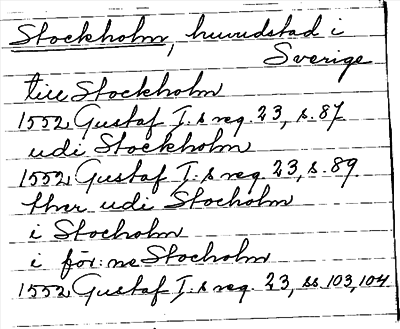 Stockholm, huvudstad i
Sverige
till Stockholm
1552 Gustaf I:s reg. 23, s. 87
udi Stockholm
1552 Gustaf I:s reg. 23, s. 89
ther udi Stocholm
i Stocholm
i för:ne Stocholm
1552 Gustaf I:s reg. 23, ss. 103, 104